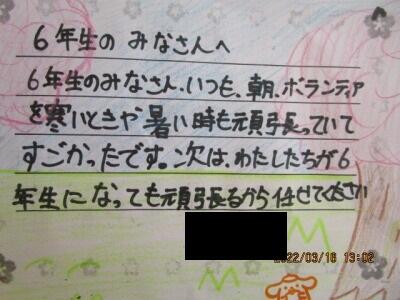 6年生の みなさんへ
6年生のみなさん、いつも、朝、ボランティア
を寒いときや 暑い時も頑張っていて
すごかったです。次は、わたしたちが6
年生になっても頑張るから任せてください
2022/03/16 13:02